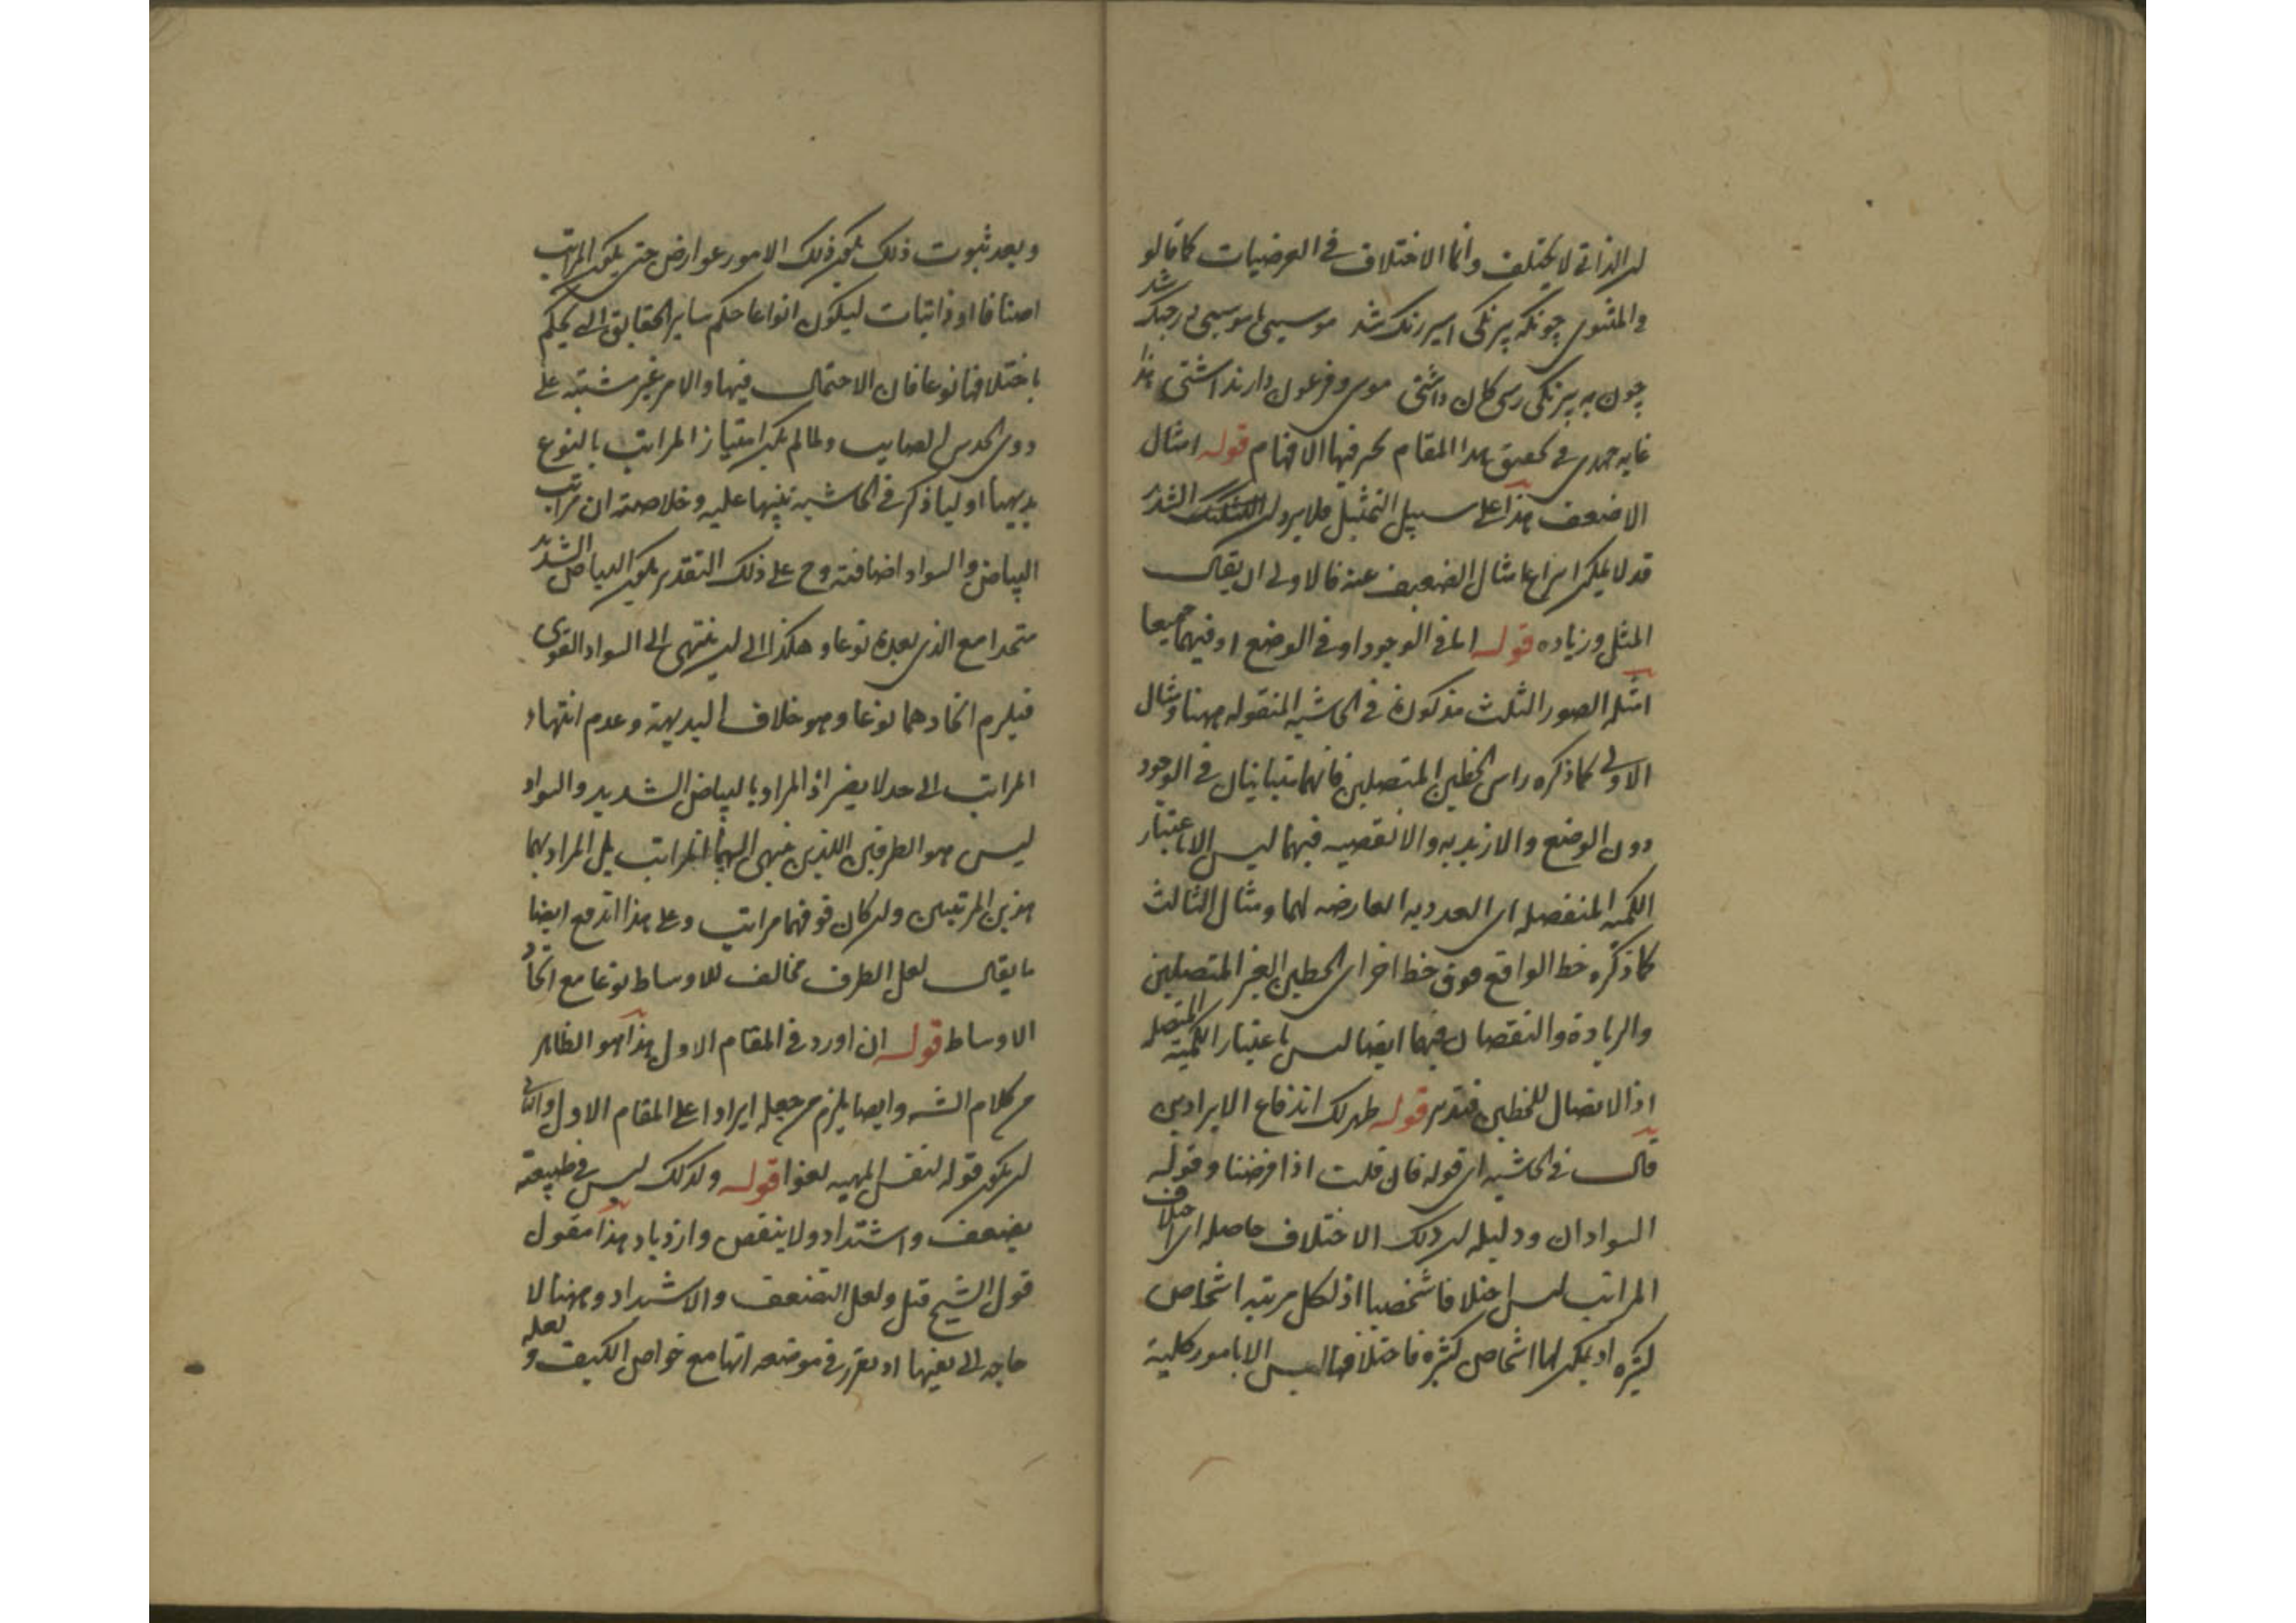 ان الذاتى لا يختلف وانما الاختلاف فى العرضيات كما قالو
فى المثنوى چونكه بيرنكى اسير رنك شد موسىى با موسىى در جنك شد
چون به بيرنكى رسى كان داشتى موسى وفرعون دارند اشتى هذا
غايه جهدى فى تحقيق هذا المقام تحير فيها الافهام قوله امثال
الاضعف هذا على سبيل التمثيل فلا يرد ان الشديد
قد لا يمكن انتزاع امثال الضعيف عنه فالاولى ان يقال
المثل وزياده قوله اما فى الوجود او فى الوضع او فيهما جميعا
امثله الصور الثلث مذكورة فى الحاشيه المنقوله ههنا ومثال
الاولى كما ذكره راس الخطين المتصلين فانهما متباينان فى الوجود
دون الوضع والازيديه والانقصيه فيهما ليس الا باعتبار
الكميه المنفصله اى العدديه العارضه لهما ومثال الثالث
كما ذكره خط الواقع فوق خط اخر اى الخطين الغير المتصلين
والزيادة والنقصان فيهما ايضا ليس باعتبار الكمية المتصله
اذ الاتصال للخطين فتدبر قوله ظهر لك اندفاع الايرادين
قال فى الحاشيه اى قوله فان قلت اذا فرضنا وقوله
السوادان ودليله ان ذلك الاختلاف حاصله ان اختلاف
المراتب ليس اختلافا شخصيا اذ لكل مرتبه اشخاص
كثيره او يمكن لها اشخاص كثيره فاختلافها ليس الا بامور كلية
وبعد ثبوت ذلك يكون ذلك الامور عوارض حتى يكون المراتب
اصنافا او ذاتيات ليكون انواعا حكم ساير الحقايق التى يحكم
باختلافها نوعا فان الاحتمال فيها والامر غير مشتبه على
ذوى الحدس الصايب ولما لم يكن امتياز المراتب بالنوع
بديهيا اوليا ذكر فى الحاشية تنبيها عليه وخلاصته ان مراتب
البياض والسواد اضافيته وح على ذلك التقدير يكون البياض الشديد
متحدا مع الذى بعده نوعا وهكذا الى ان ينتهى الى السواد القوى
فيلزم اتحادهما نوعا وهو خلاف البديهة وعدم انتهاء
المراتب الى حد لا يضر اذ المراد بالبياض الشديد والسواد
ليس هو الطرفين اللذين ينتهى اليهما المراتب بل المراد بهما
هذين المرتبتين وان كان فوقهما مراتب وعلى هذا اندفع ايضا
ما يقال لعل الطرف مخالف للاوساط نوعا مع اتحاد
الاوساط قوله ان اورد فى المقام الاول هذا هو الظاهر
من كلام الشه وايضا يلزم من جعله ايرادا على المقام الاول والثانى
ان يكون قوله لنفس المهيه لغوا قوله ولذلك ليس فى طبيعة
يضعف واشتداد ولا ينقص وازدياد هذا مقول
قول الشيخ قيل ولعل التضعف والاشتداد وههنا لا
حاجه الى نفيهما اذ تقرر فى موضعه انها مع خواص الكيف ولعله